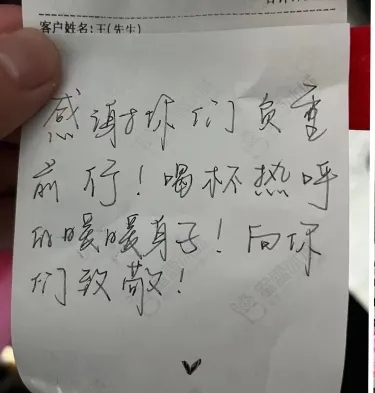 客户姓名:王(先生)
感谢你们负重
前行!喝杯热呼
的暖暖身子!向你
们致敬!